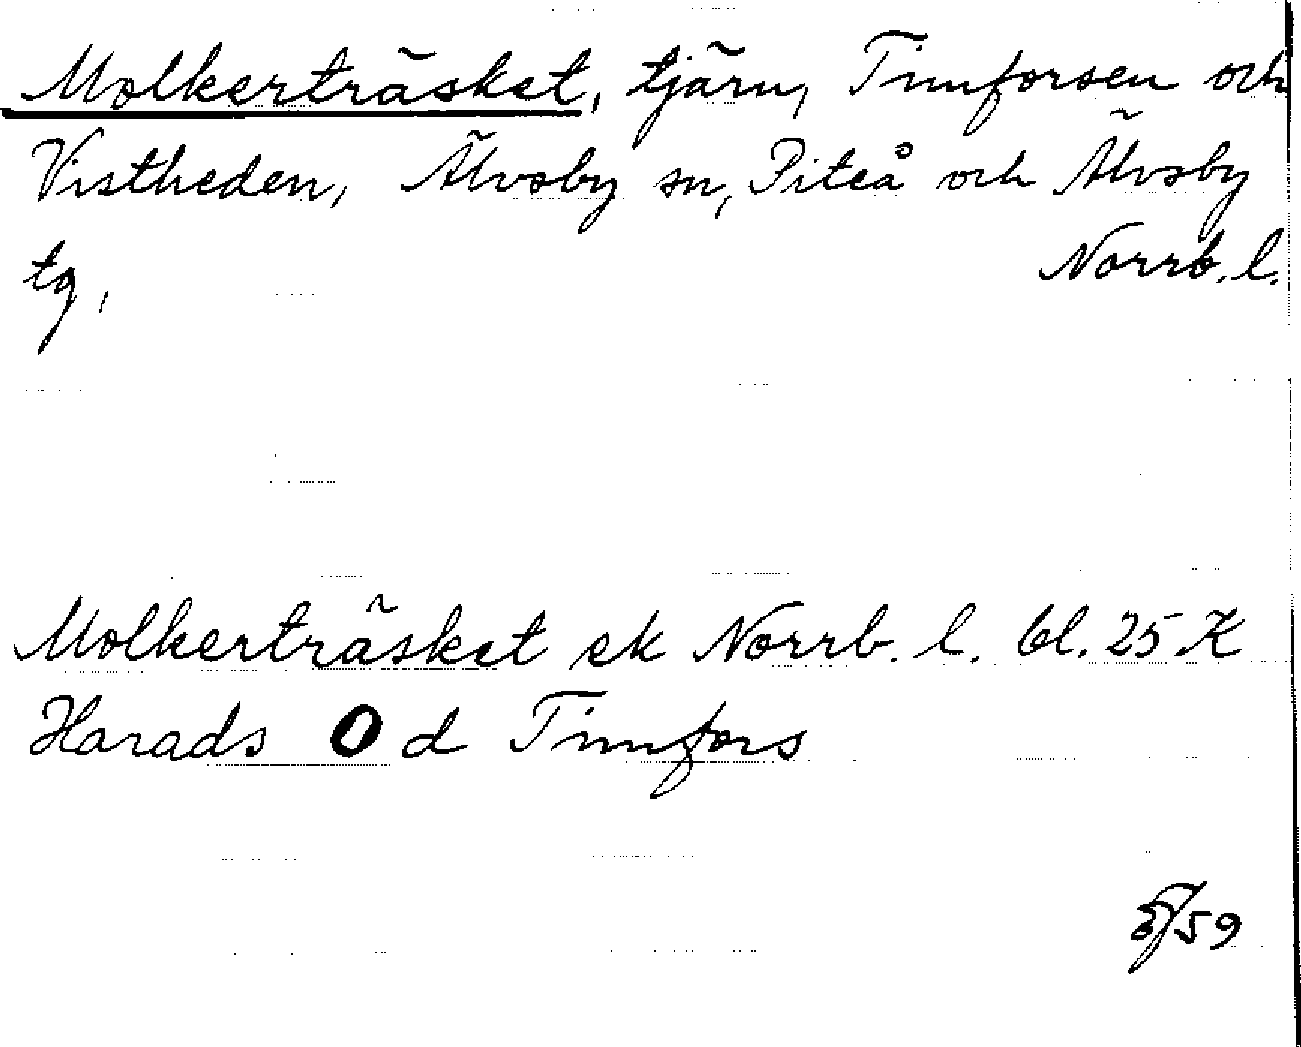 Molkerträsket, tjärn, Timforsen och
Vistheden, Älvsby sn, Piteå och Älvsby
tg, Norrb. l.
Molkerträsket ek Norrb. l. bl. 25 K
Harads O d Timfors
59